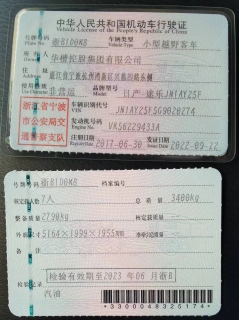 中华人民共和国机动车行驶证
Vehicle License of the People's Republic of China
号牌号码 浙B1D0W8 车辆类型 小型越野客车
Plate No. Vehicle Type
所有人 华楷控股集团有限公司
住址
使用性质 非营运 品牌型号 日产-途乐JN1AY25F
浙江省宁波
市公安局交
通警察支队
车辆识别代号
VIN
发动机号码 VK56229433A
Engine No.
注册日期 2017-06-30 发证日期 2022-09-22
Register Date Issue Date
号牌号码 浙B1D0W8 档案编号
核定载人数 7人 总质量 3400kg
整备质量 2790kg 核定载质量 --
外廓尺寸 5164×1999×1955mm 准牵引总质量 --
备注
检验记录 检验有效期至2023年06月浙B
汽油